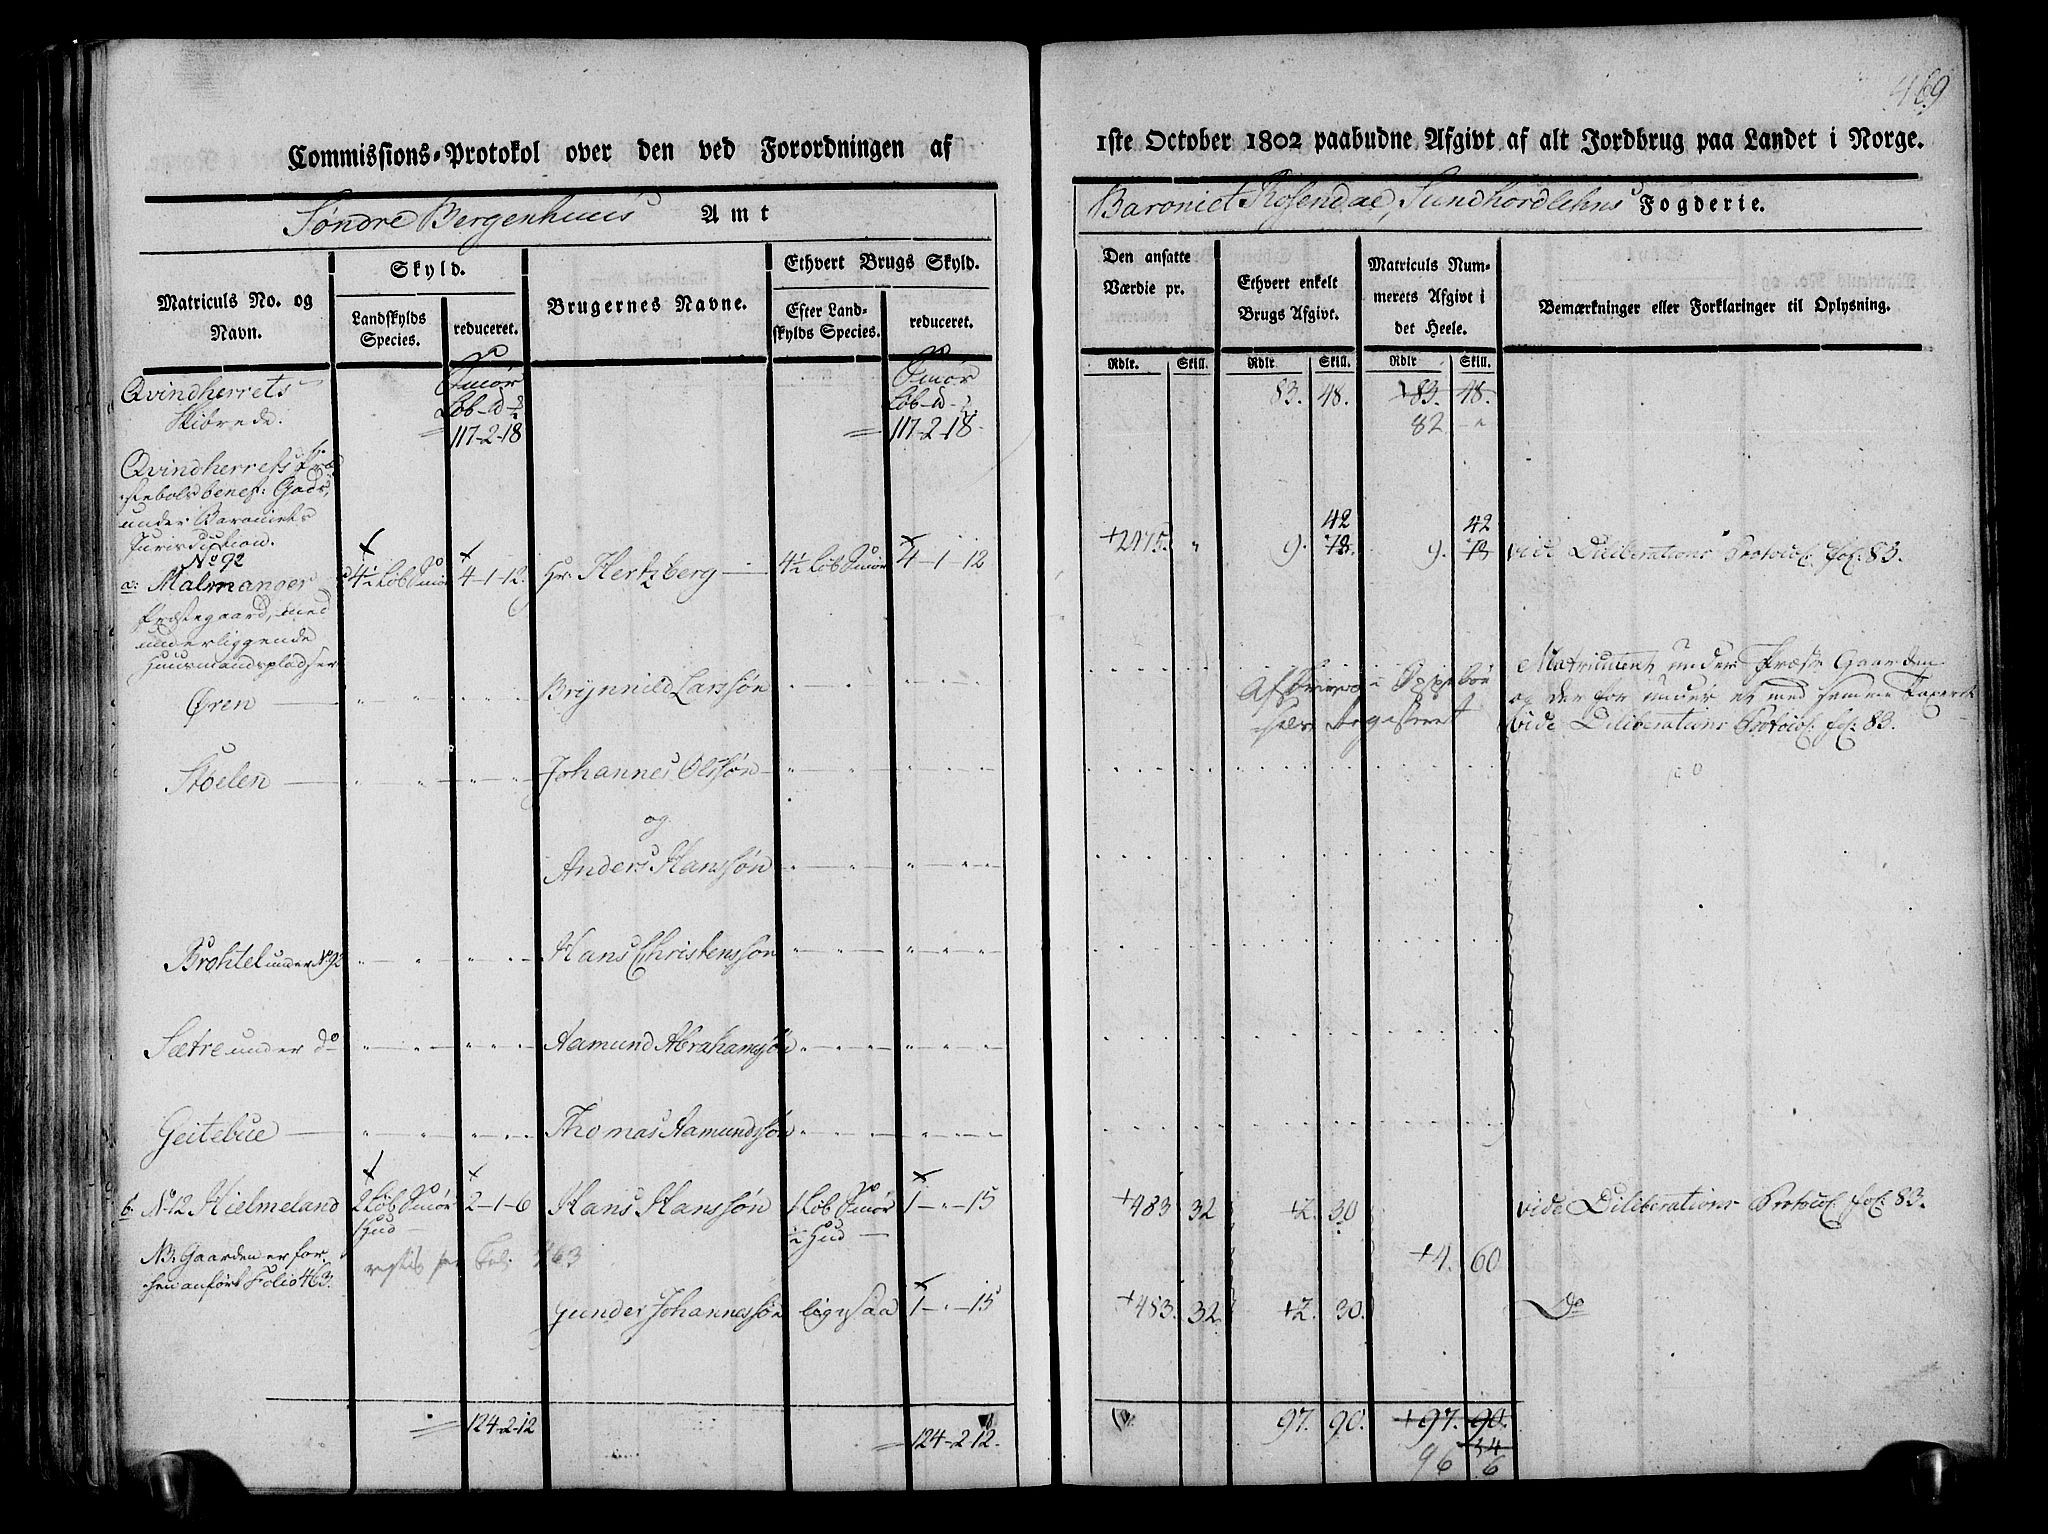 469
Commissions-Protokol over den ved Forordningen af
1ste October 1802 paabudne Afgivt af alt Jordbrug paa Landet i Norge.
Søndre Bergenhuus Amt
Baroniet Rosendal, Sundhordlehns Fogderie.
Matriculs No. og Navn.
Skyld.
Landskylds Species.
reduceret.
Brugernes Navne.
Ethvert Brugs Skyld.
Efter Landskylds Species.
reduceret.
Den ansatte Værdie pr.
Ethvert enkelt Brugs Afgivt.
Matriculs Nummerets Afgivt i det Heele.
Bemærkninger eller Forklaringer til Oplysning.
Rdlr. Skill. Rdlr Skill. Rdlr Skill.
Qvindherrets Smør Smør 83. 48. 83. 48.
Skibrede. Løb 82
117-2-18 117-2-18
Qvindherrets
stebols benef: Gods,
under Baroniets
Jurisdiction.
No 92 42 42
a: Malmanger 4½ Løb Smør 4-1-12 Hr: Hertzberg 4½ Løb Smør 4-1-12 +2475. " 9. 18. 9. 18 vide Diliberations Protocol. fol. 83.
Præstegaard, med
underliggende
Huusmandspladser
Øren Brynnild Larssøn
Matriculeret under Præste Gaarden
og derfor under et med samme
vide Diliberations Protocol. fol. 83.
Stoelen Johannes Olssøn
og
Anders Hanssøn
Brohtel under No 92 Hans Christenssøn
Sætre under do Aamund Abrahamssøn
Geitebue Thomas Aamundssøn
b: No 12 Hielmeland 2 Løb Smør 2-1-6 Hans Hanssøn 1 Løb Smør 1-"-15 +483 32 +2. 30 vide Diliberations Protocol. fol. 83.
1 Hud ½ Hud
NB: Gaarden er for- 463 +4. 60
hen anført Folio 463.
Gunder Johannessøn ligesaa 1-"-15 +483. 32 +2. 30. Do
124-2-12 124-2-12. 97. 90. +97. 90.
34
96 6